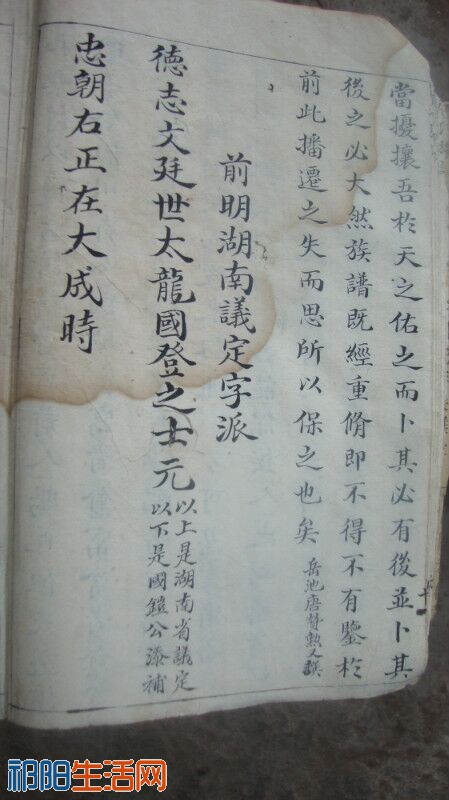 當擾攘吾於天之佑之而卜其必有後並卜其
後之必大然族譜既經重脩即不得不有鑒於
前此播遷之失而思所以保之也矣 岳池唐贊勳又撰
前明湖南議定字派
德志文廷世太龍國登之士元 以上是湖南省議定
以下是國鎧公添補
忠朝右正在大成時
祁阳生活网